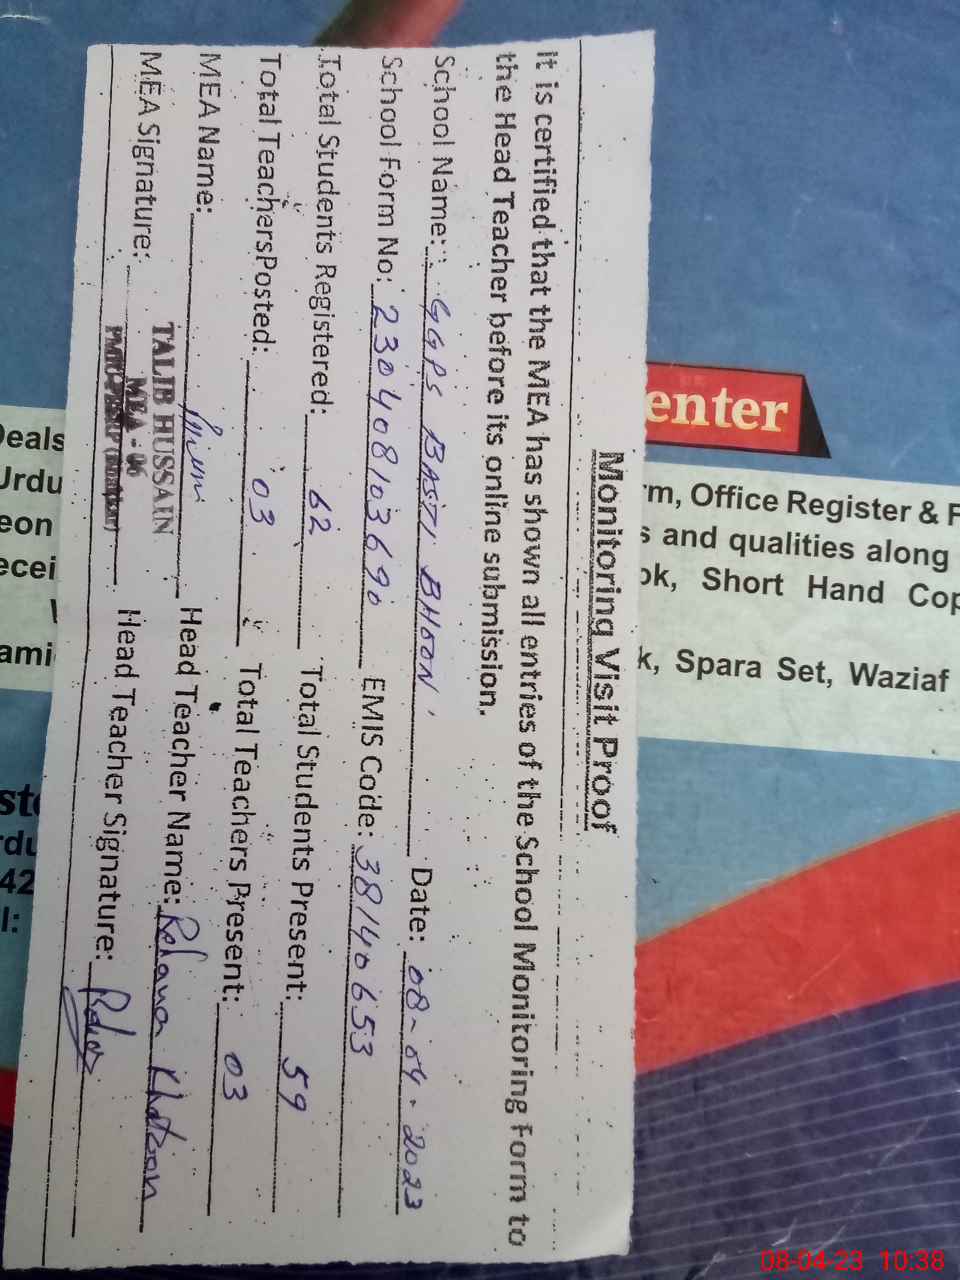 Monitoring Visit Proof
It is certified that the MEA has shown all entries of the School Monitoring Form to
the Head Teacher before its online submission.
School Name: GGPS BASTI BHOON Date: 08-04-2023
School Form No: 230408103690 EMIS Code: 38140653
Total Students Registered: 62 Total Students Present: 59
Total TeachersPosted: 03 Total Teachers Present: 03
MEA Name: Head Teacher Name: Rehana Khatoon
TALIB HUSSAIN
MEA - 06
MEA Signature: Head Teacher Signature:
enter
Deals
rm, Office Register & F
Urdu
s and qualities along
eon
ok, Short Hand Cop
ecei
k, Spara Set, Waziaf
ami
st
rdu
42
l:
08-04-23 10:38